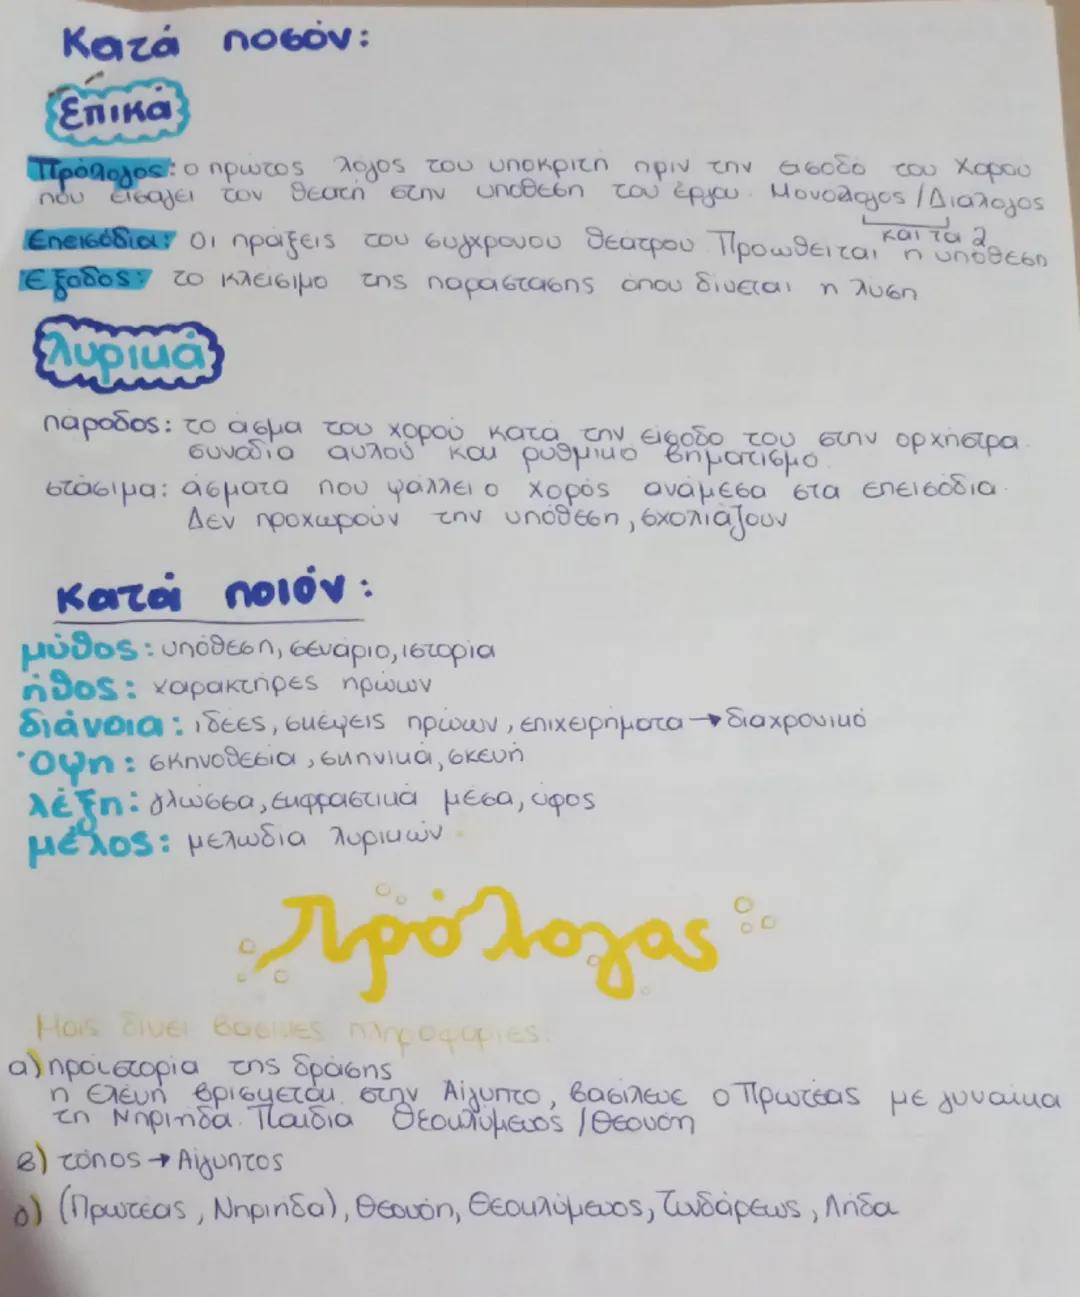 Κατά ποσόν:
Επικά
Πρόλογος: ο πρώτος λόγος του υποκριτή πριν την είσοδο του Χορου
που εισάγει τον θεατή στην υπόθεση του έργου. Μονόλογος / Διάλογος
και τα 2
Επεισόδια: Οι πράξεις του συγχρονου θεατρου. Προωθειται η υπόθεση
Εξοδος: το κλείσιμο της παραστασης οπου δίνεται η λυση
Λυρικά
πάροδος: το άσμα του χορού κατά την είσοδο του στην ορχήστρα.
συνοδία αυλού και ρυθμικο βηματισμό.
στάσιμα: άσματα που ψάλλει ο χορός ανάμεσα στα επεισόδια.
Δεν προχωρούν την υπόθεση, σχολιάζουν
Κατά ποιόν:
μύθος: υπόθεση, σενάριο, ιστορία
ήθος: χαρακτήρες ηρώων
διάνοια: ιδέες, σκέψεις ηρώων, επιχειρήματα → διαχρονικό
Όψη: σκηνοθεσία, σκηνικά, σκευή
λέξη: γλώσσα, εκφραστικά μέσα, ύφος
μέλος: μελωδία λυρικών
Πρόλογος
Μας δίνει βασικές πληροφορίες:
α) προϊστορία της δράσης
η Ελένη βρισκεται στην Αίγυπτο, βασίλευε ο Πρωτέας με γυναίκα
τη Νηρηίδα. Παιδία Θεοκλύμενος / Θεονόη
β) τόπος → Αίγυπτος
(Πρωτέας, Νηρηίδα), Θεονόη, Θεοκλύμενος, Τυνδάρεως, Λήδα